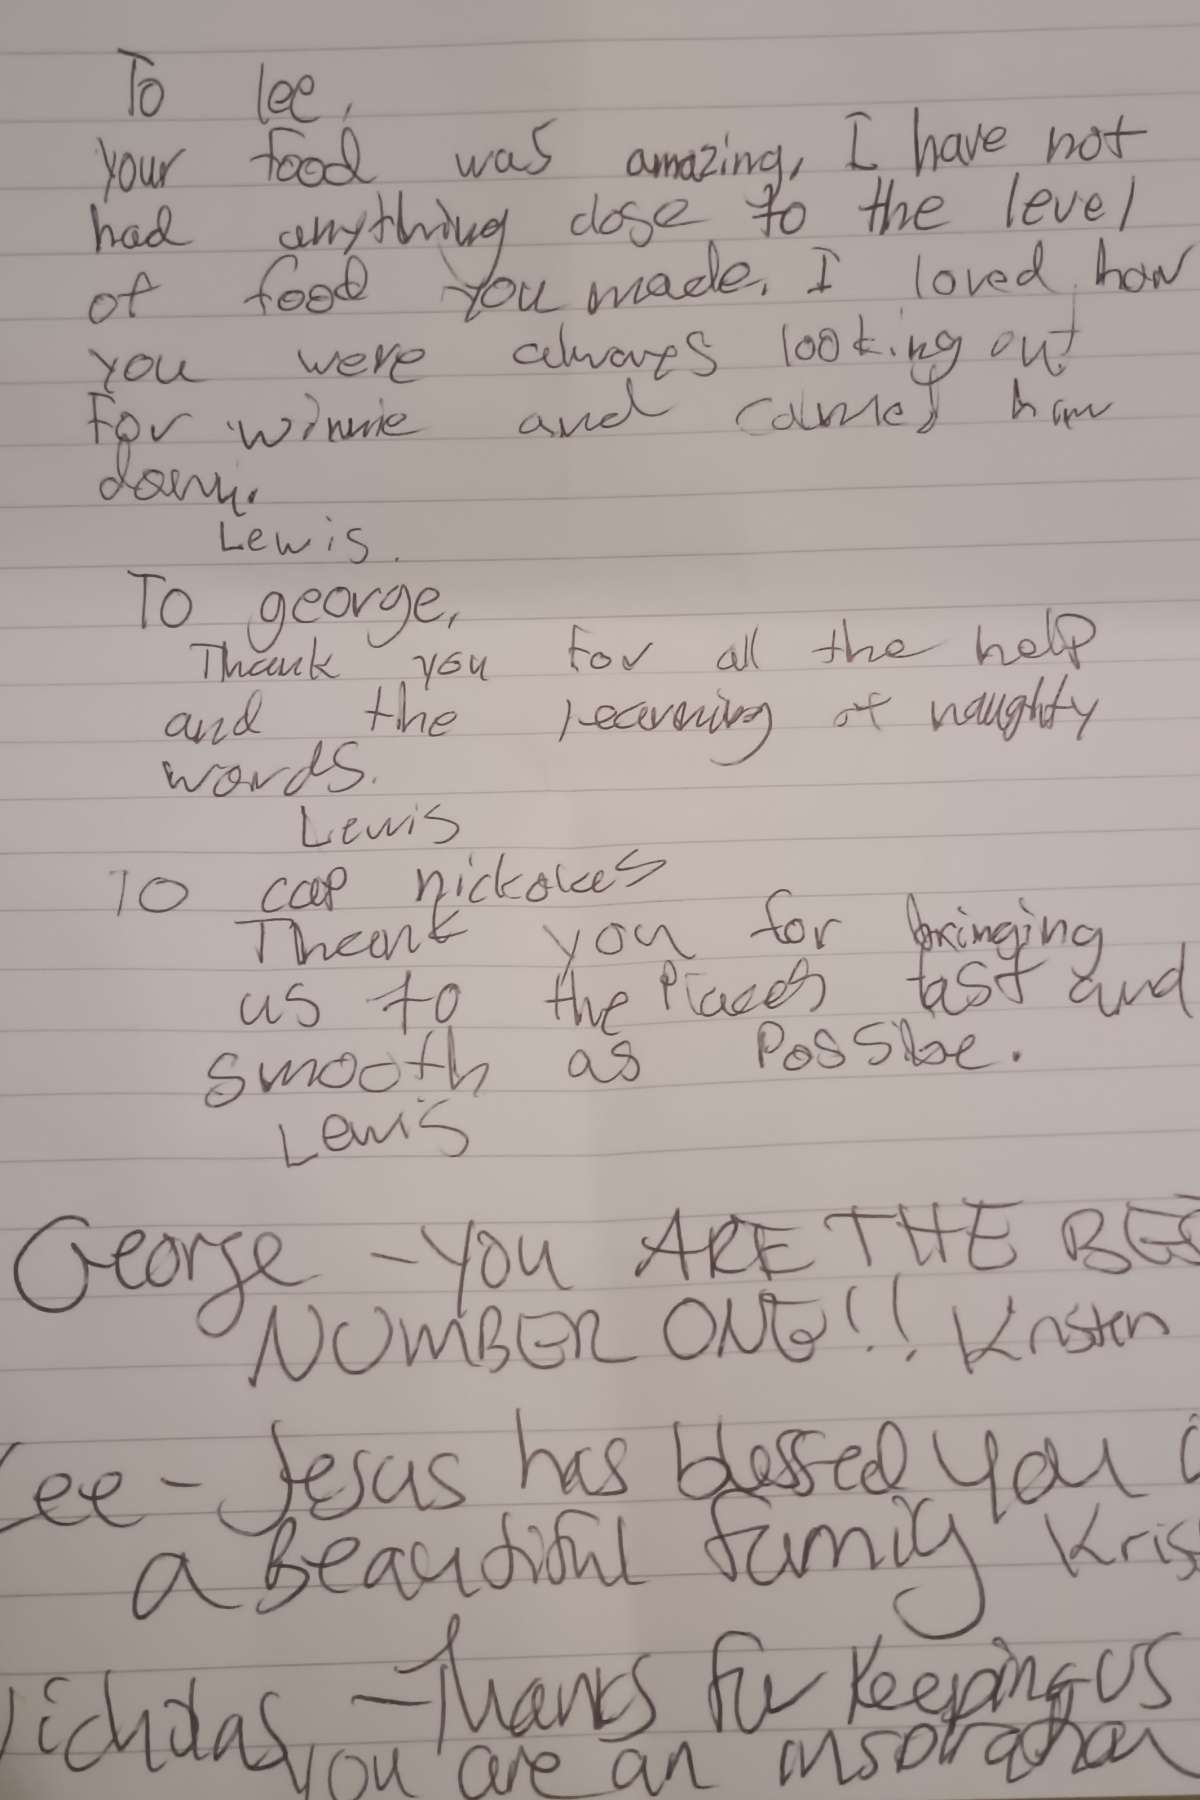 To lee,
your food was amazing, I have not
had anything close to the level
of food you made. I loved how
you were always looking out
For winnie and calmed him
down.
Lewis.
To george,
Thank you for all the help
and the learning of naughty
words.
Lewis
To cap nickolas
Thank you for bringing
us to the places fast and
smooth as Possibe.
Lewis
George - You ARE THE BES
NUMBER ONE!! Kristen
Lee - Jesus has blessed you
a Beautiful family Kris
Nicholas - Thanks for keeping us
you are an inspiration